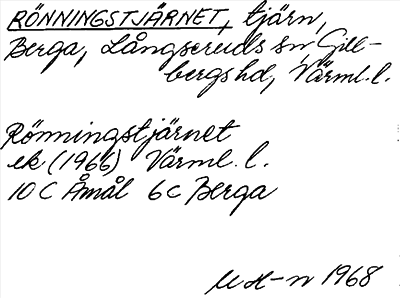 RÖNNINGSTJÄRNET, tjärn,
Berga, Långseruds sn, Gill-
bergs hd, Värml. l.
Rönningstjärnet
ek (1966) Värml. l.
10 C Åmål 6c Berga
1968